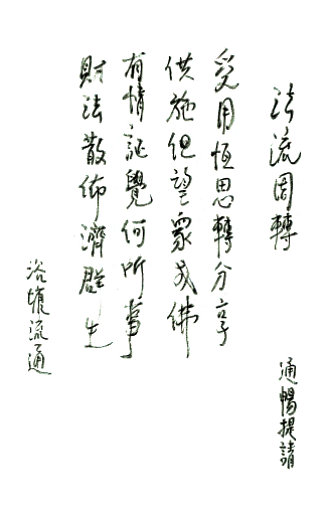 法流周轉
受用恆思轉分享
供施但望眾成佛
有情証覺何所事
財法散佈濟群生
浴壙流通
通暢提請